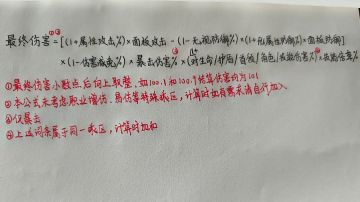 最终伤害①②=[(1+属性攻击%)×面板攻击-(1-无视防御%)×(1+属性防御%)×面板防御]
×(1-伤害减免%)×暴击伤害%③×(对生命/护盾/首领/角色/技能伤害%)④×技能伤害%
①最终伤害小数点后向上取整,如100.1和100.9结算伤害均为101
②本公式未考虑职业增伤、易伤等特殊乘区,计算时如有需求请自行加入
③仅暴击
④上述词条属于同一乘区,计算时加和